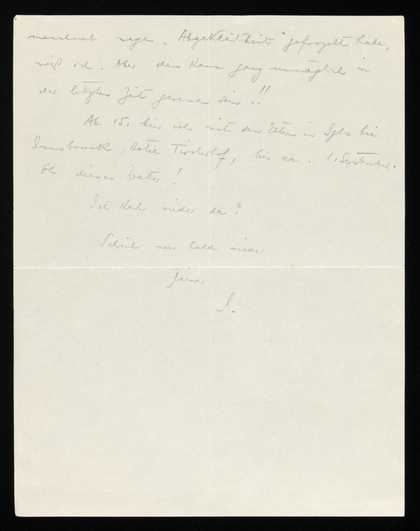 "Abgeklärtheit" gefragt habe,
weiß ich. Aber das kann ganz unmöglich in
der letzten Zeit gewesen sein!!
Ab 15. bin ich mit den Eltern in Igls bei
Innsbruck, Hotel Tirolerhof, bis ca. 1. September.
Oh dieses Wetter!
Ist Karl wieder da?
Schreib mir bald wieder
S.